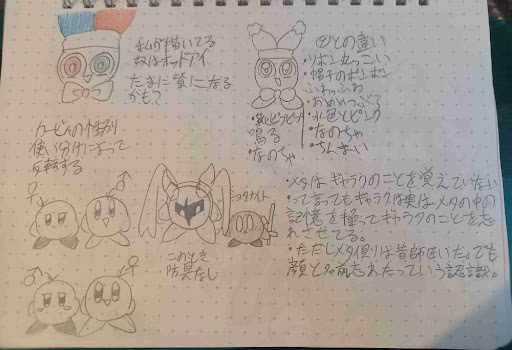 私が描いてる
奴はオッドアイ
たまに蛍になる
かも?
②との違い
・リボン丸っこい
・帽子のボンボン
ふわっふわ
・おめめつぶる
・水色とピンク
・なのちゃ
・ちんまい
鳴る
・なのちゃ
カービィの性別
使い分けによって
反転する
♀
♂
ヨタナイト
このとき
防具なし
♂
♀
・メタはギャラクのことを覚えていない
って言ってもギャラクは実はメタの中の
記憶を操ってギャラクのことを忘
れさせてる。
・ただしメタ側りは昔師匠いた。でも
顔と名前もあたっていう認識。